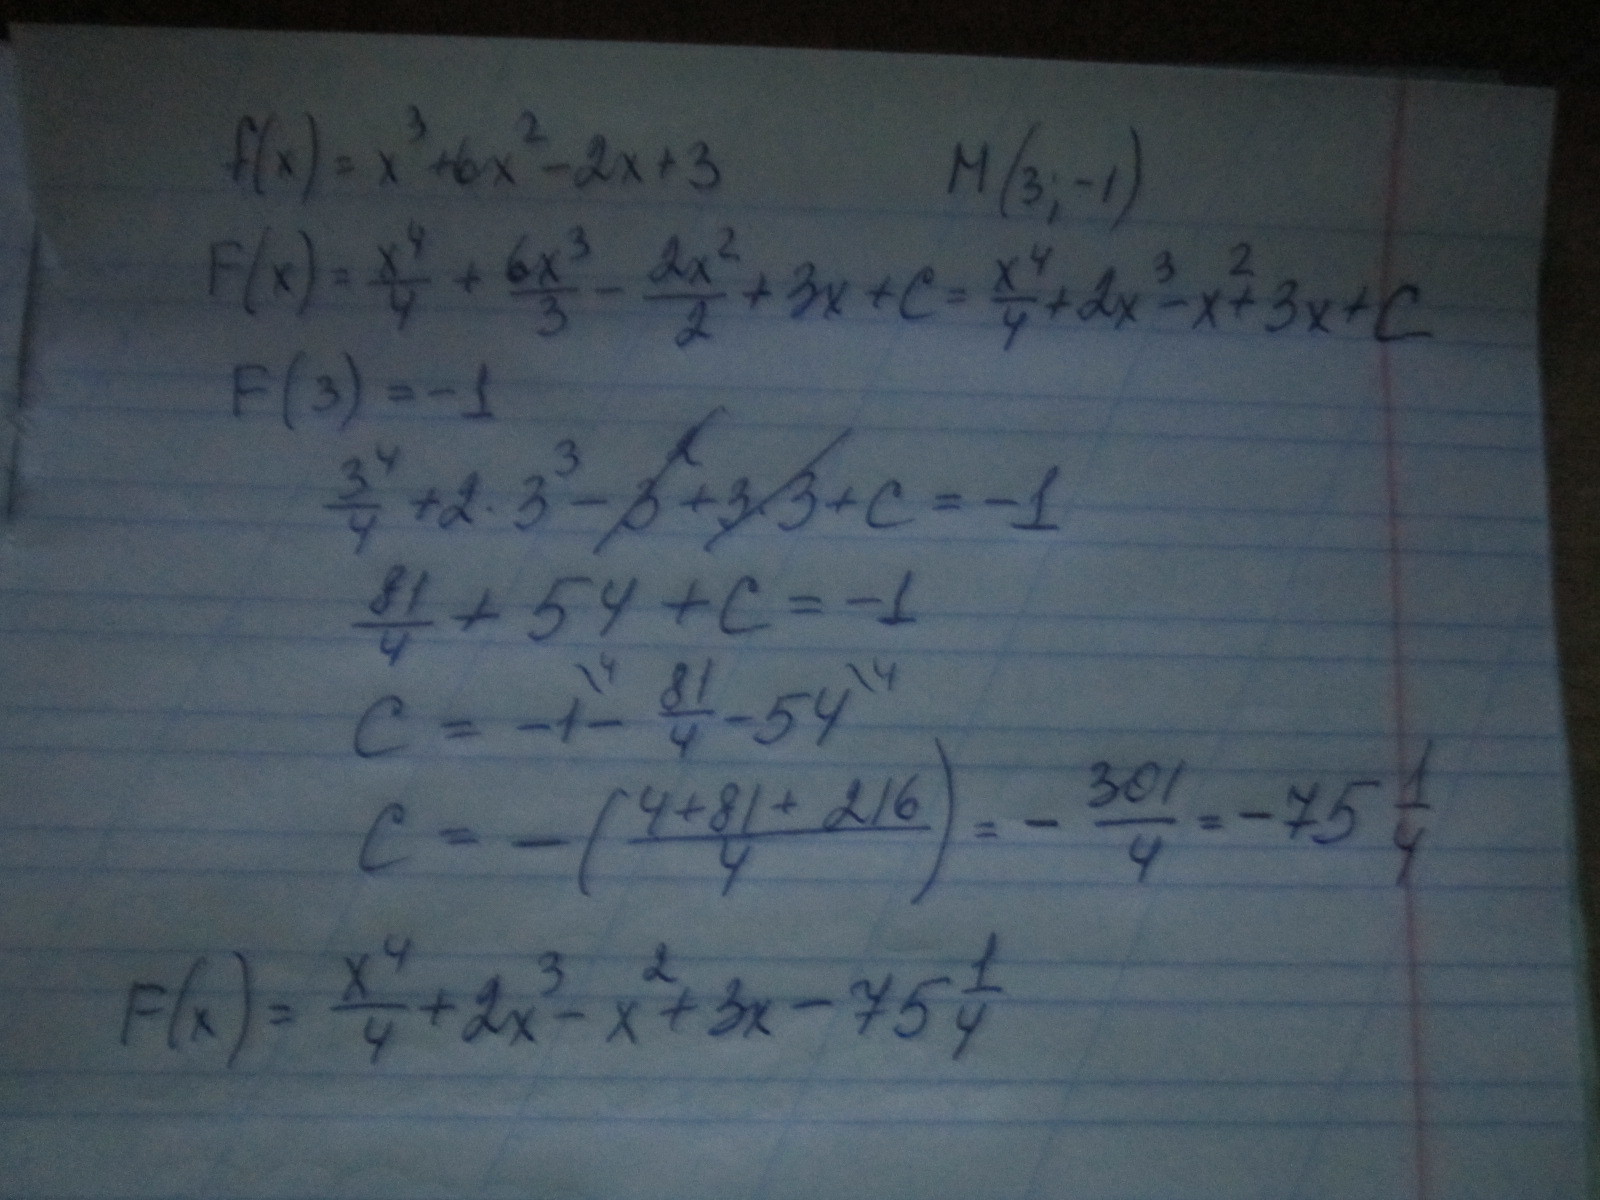 f(x) = x³+6x²-2x+3 M(3;-1)
F(x) = x⁴/4 + 6x³/3 - 2x²/2 + 3x + C = x⁴/4 + 2x³ - x² + 3x + C
F(3) = -1
3⁴/4 + 2·3³ - 3² + 3·3 + C = -1
81/4 + 54 + C = -1
C = -1\4 - 81/4 - 54\4
C = -((4+81+216)/4) = -301/4 = -75 1/4
F(x) = x⁴/4 + 2x³ - x² + 3x - 75 1/4